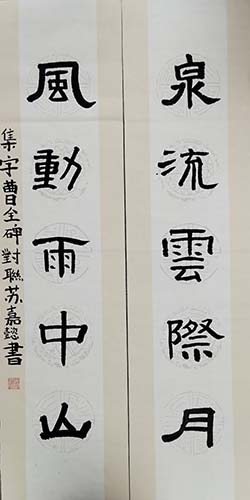 泉流雲際月
風動雨中山
集字曹全碑對聯苏嘉懿書